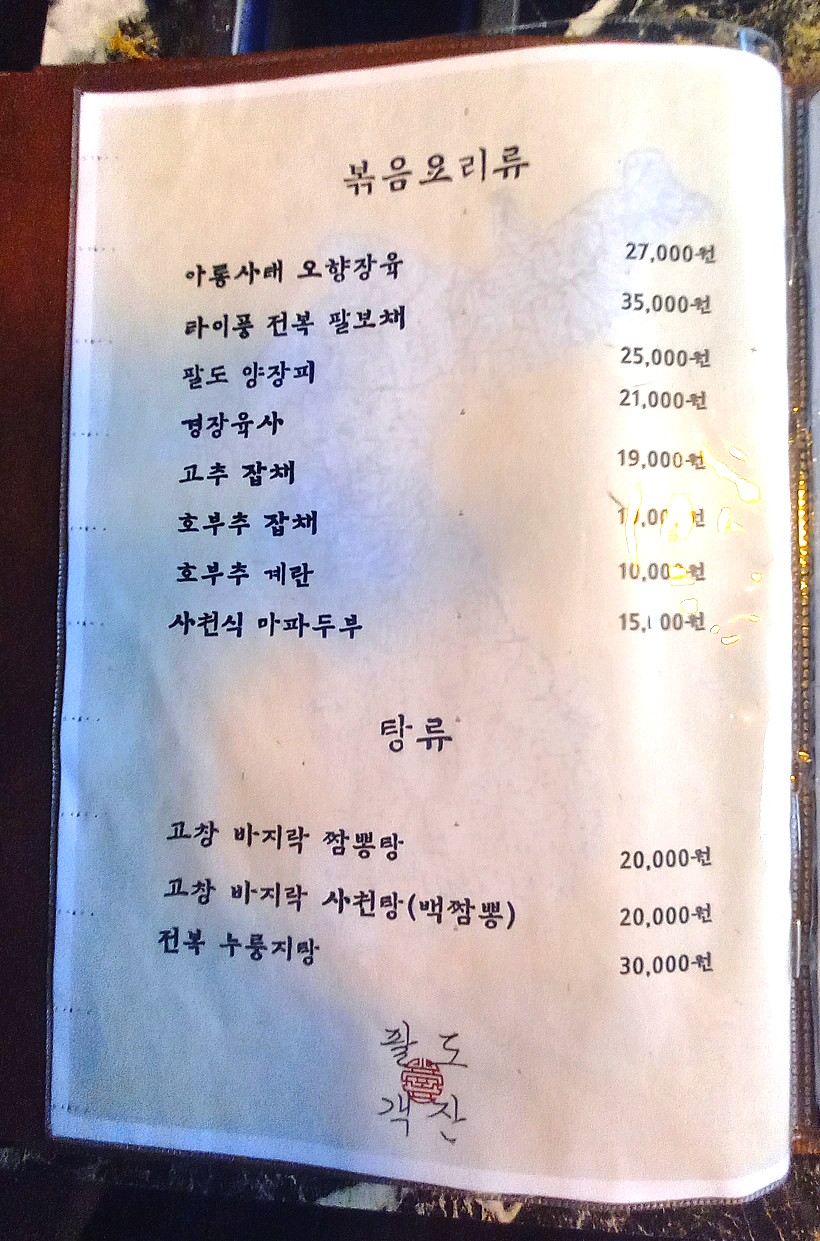 볶음요리류
아롱사태 오향장육 27,000원
타이풍 전복 팔보채 35,000원
팔도 양장피 25,000원
경장육사 21,000원
고추 잡채 19,000원
호부추 잡채
호부추 계란 10,000원
사천식 마파두부 15,000원
탕류
고창 바지락 짬뽕탕 20,000원
고창 바지락 사천탕(백짬뽕) 20,000원
전복 누룽지탕 30,000원
팔도
객잔